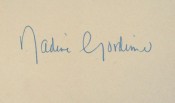 Nadine Gordimer